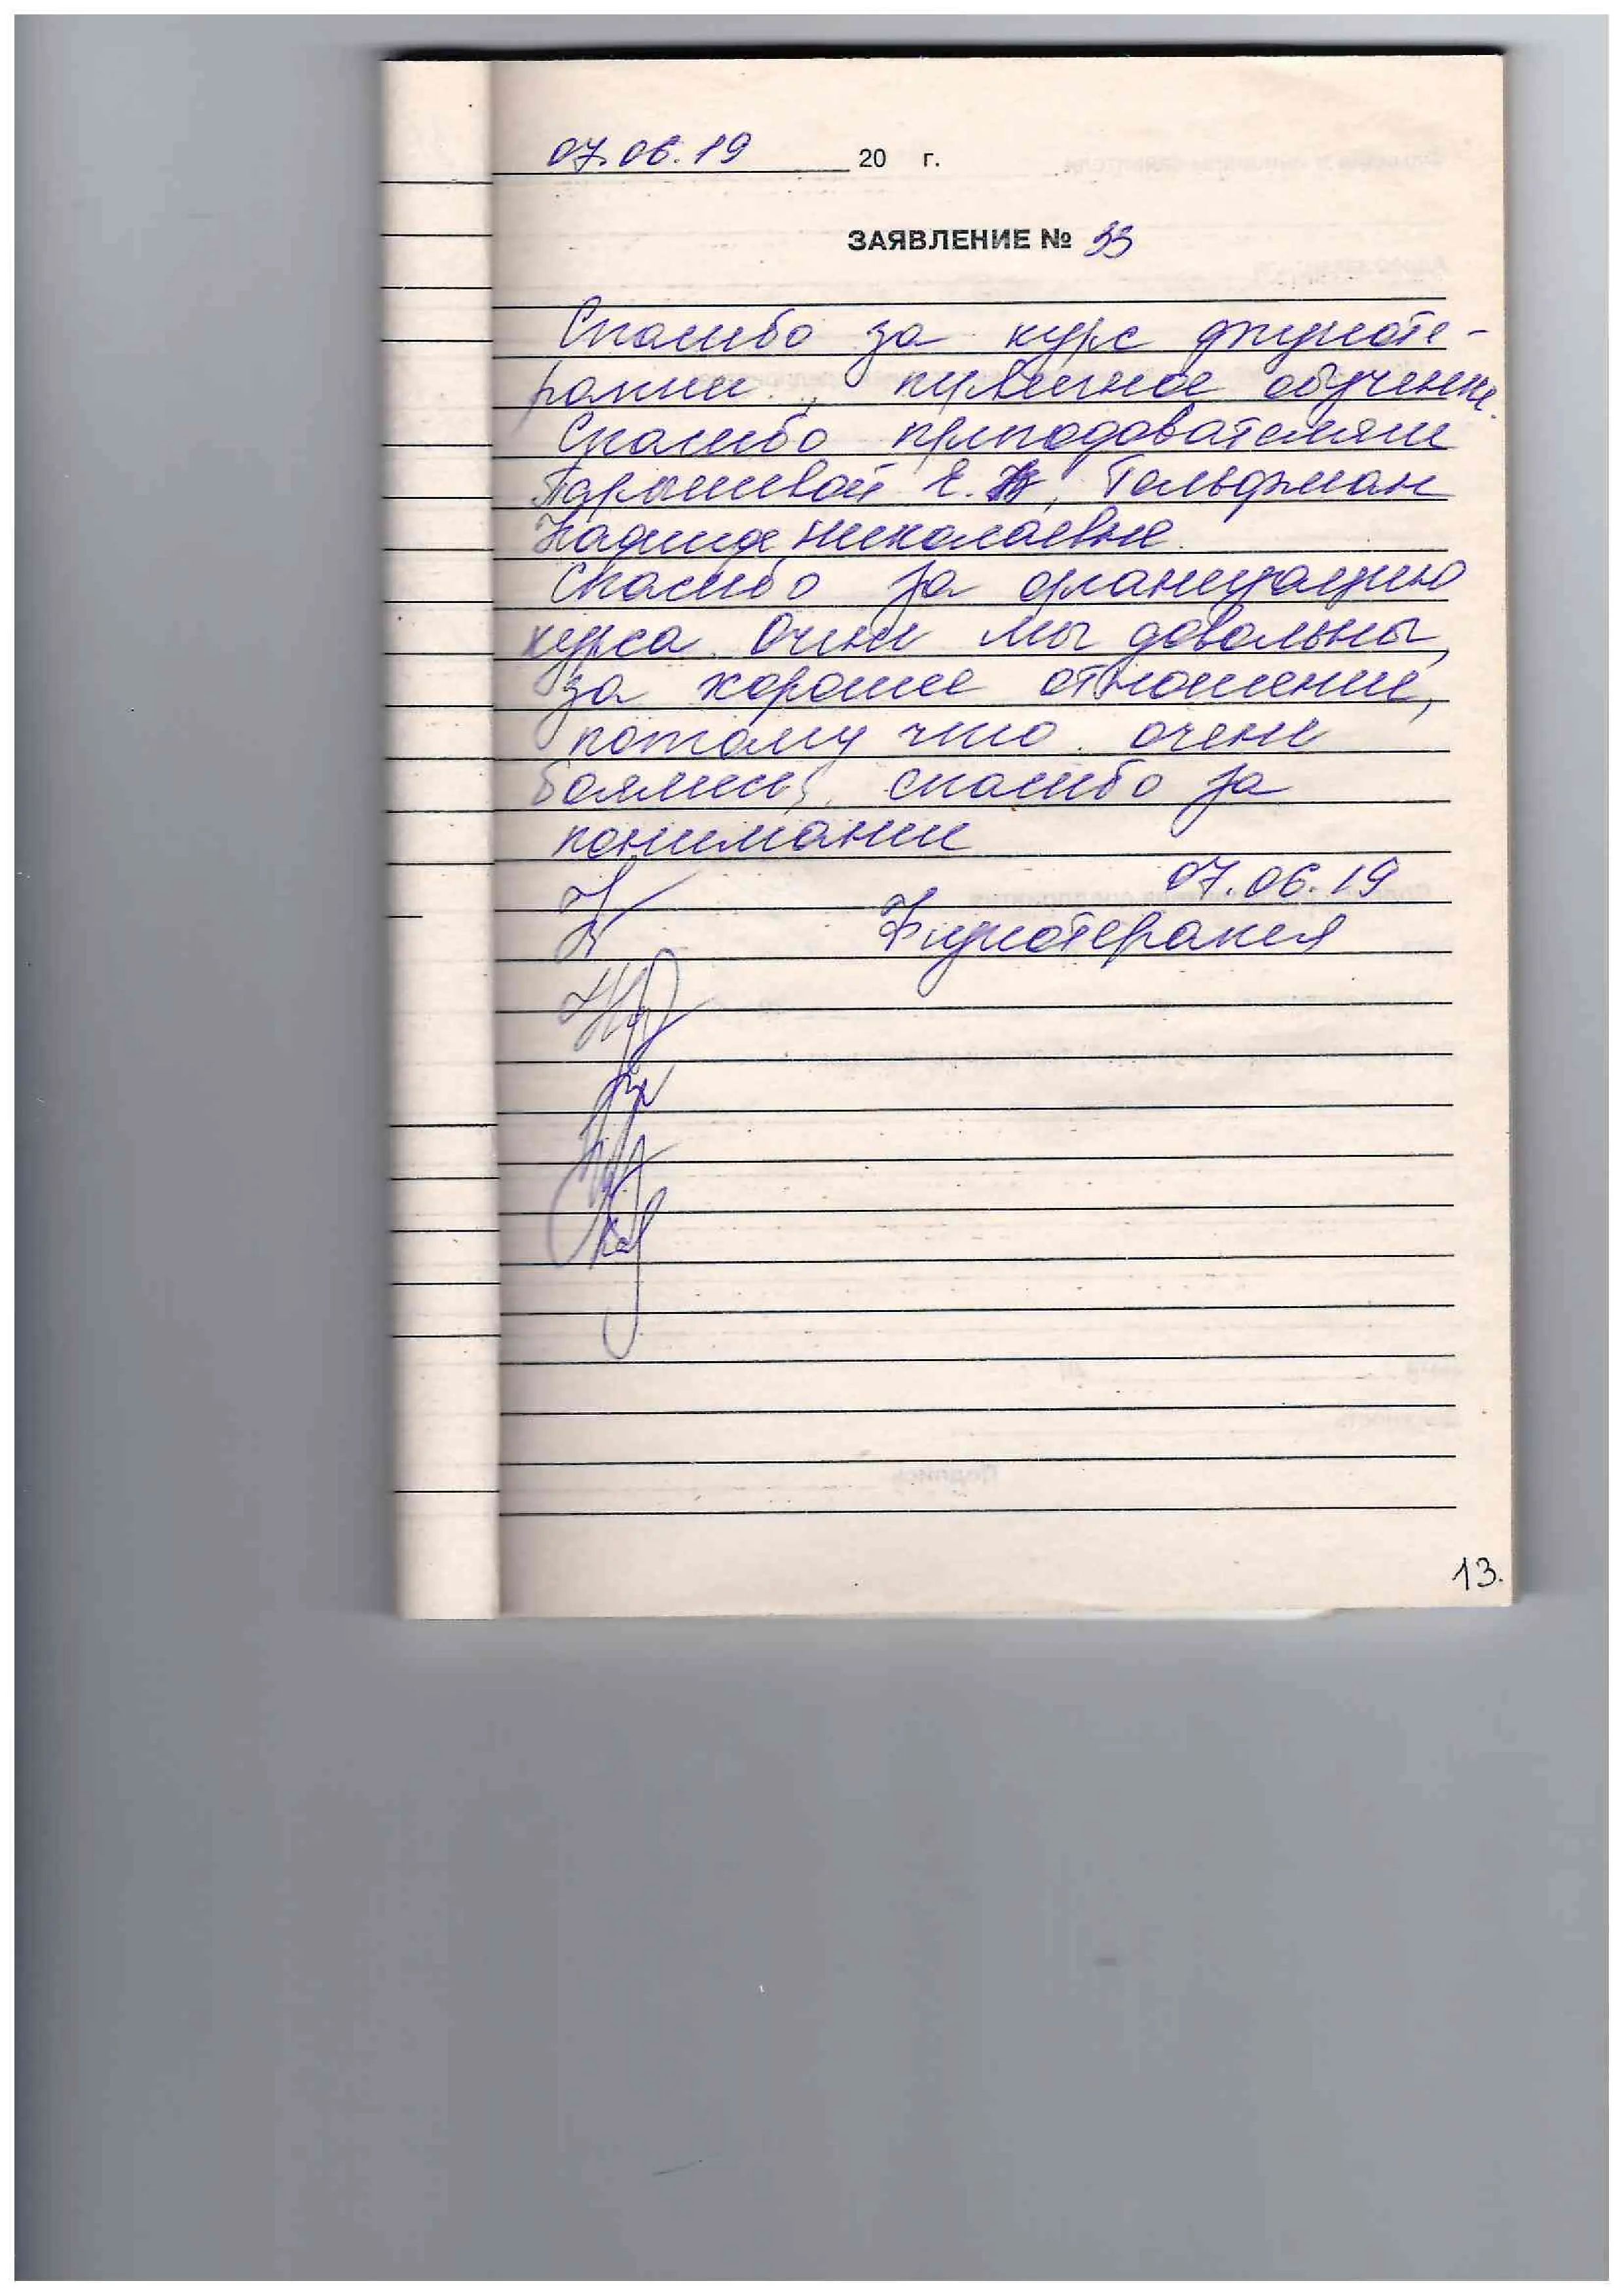 07.06.19 20 г.
ЗАЯВЛЕНИЕ № 33
Спасибо за курс физиоте-
рапии, первичное обучение.
Спасибо преподователям
Е. Гольдман
Надежде Николаевне.
Спасибо за организацию
курса. Очень мы довольны,
за хорошее отношение,
потому что очень
боялись, спасибо за
понимании
07.06.19
Физиотерапия
13.